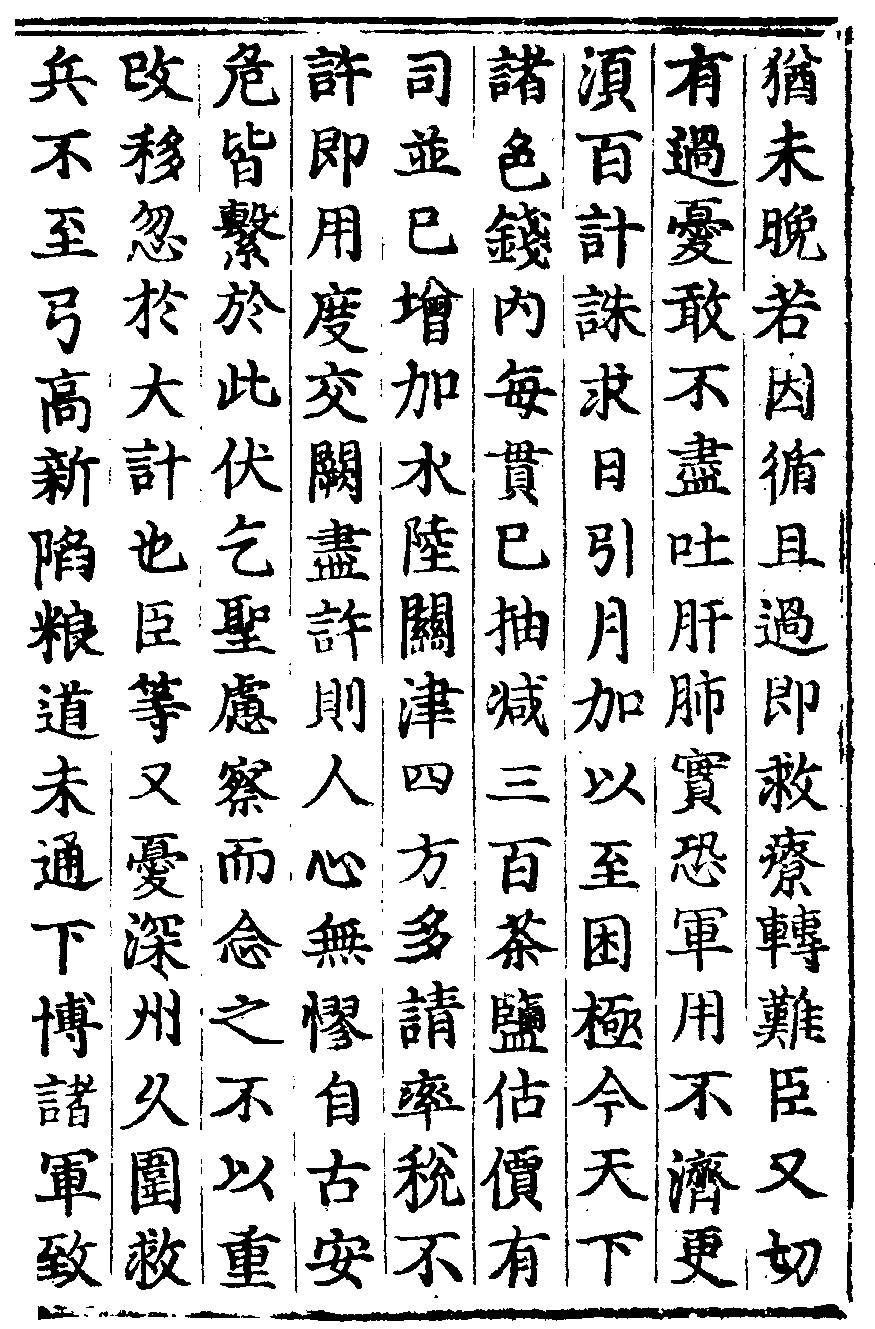 猶未晚若因循且過即救療轉難臣又切
有過憂敢不盡吐肝肺實恐軍用不濟更
湏百計誅求日引月加以至困極今天下
諸色錢內每貫已抽减三百茶鹽估價有
司並已增加水陸關津四方多請率稅不
許即用度交闕盡許則人心無憀自古安
危皆繫於此伏乞聖慮察而念之不以重
改移忽於大計也臣等又憂深州久圍救
兵不至弓高新陷粮道未通下博諸軍致